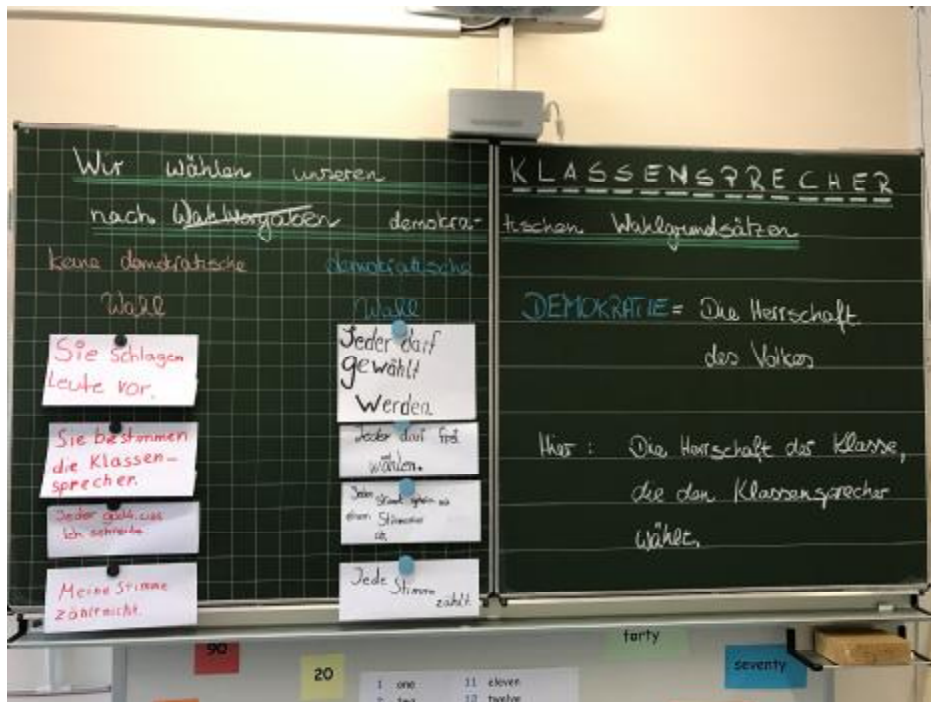 Wir wählen unseren KLASSENSPRECHER
nach Wahlvorgaben demokra- tischen Wahlgrundsätzen
keine demokratische
Wahl
Sie schlagen
Leute vor.
Sie bestimmen
die Klassen-
sprecher.
Jeder
ich schreibe
Meine Stimme
zählt nicht.
demokratische
Wahl
Jeder darf
gewählt
werden
Jeder darf frei
wählen.
Jeder
einen
Jede Stimme
zählt
DEMOKRATIE = Die Herrschaft
des Volkes
Hier: Die Herrschaft der Klasse,
die den Klassensprecher
wählt.
90
20
forty
seventy
1 one 11 eleven
12 twelve